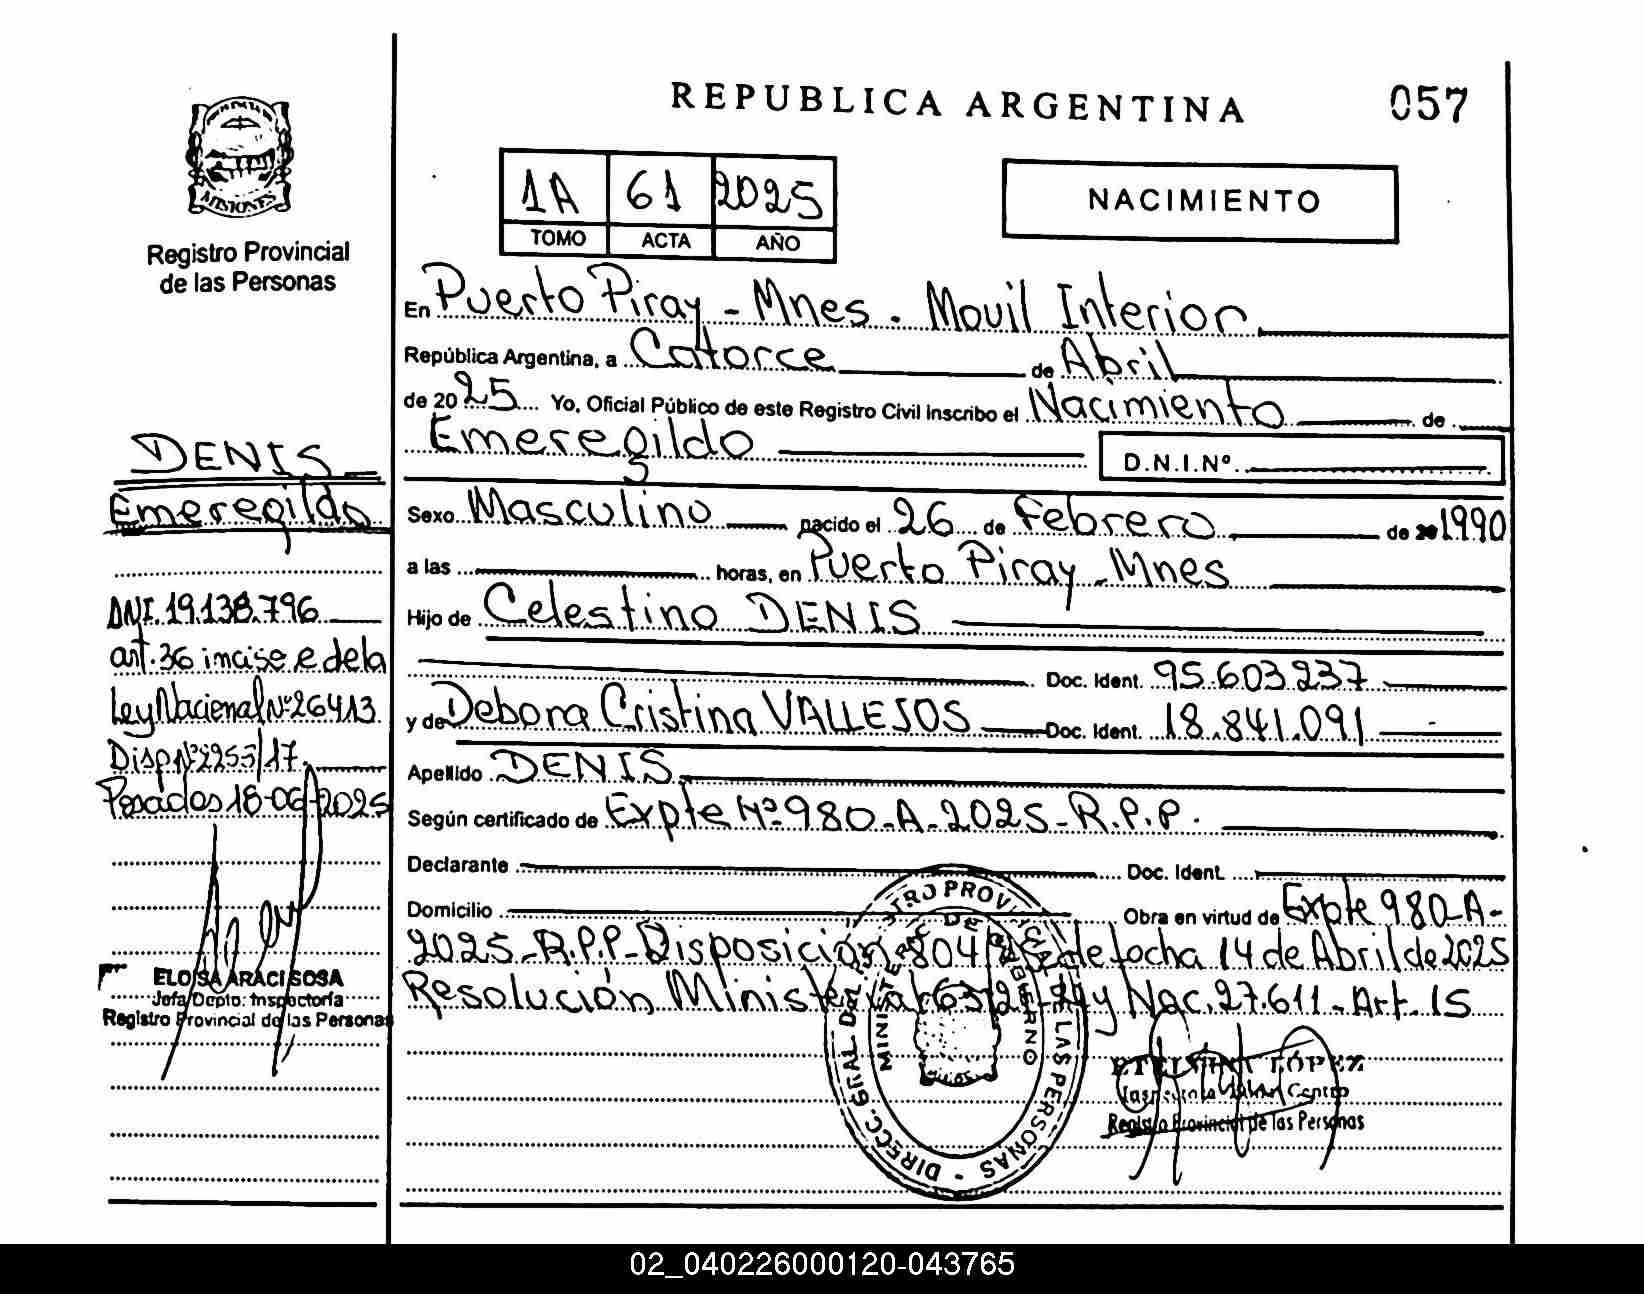 REPUBLICA ARGENTINA
057
MISIONES
Registro Provincial
de las Personas
1A 61 2025
TOMO ACTA AÑO
NACIMIENTO
En Puerto Piray - Mnes. Movil Interior
República Argentina, a Catorce de Abril
de 2025 Yo, Oficial Público de este Registro Civil inscribo el Nacimiento de
Emeregildo
D.N.I.Nº
Sexo Masculino nacido el 26 de Febrero de 1990
a las horas, en Puerto Piray - Mnes
Hijo de Celestino DENIS
Doc. Ident. 95.603.237
y de Debora Cristina VALLEJOS Doc. Ident. 18.841.091
Apellido DENIS
Según certificado de Expte Nº 980-A-2025-R.P.P.
Declarante Doc. Ident.
Domicilio Obra en virtud de Expte 980-A-
2025-R.P.P-Disposición 804 de fecha 14 de Abril de 2025
Resolución Ministerial y Nac. 27.611-Art. 15
DENIS
Emeregildo
DNI. 19.138.796
art. 36 inciso e de la
Ley Nacional Nº 26413
Disp Nº 2953/17
Posadas 18-06-2025
ELOISA ARACI SOSA
Jefa Depto. Inspectoría
Registro Provincial de las Personas
DIRECC. GRAL. DEL REGISTRO PROVINCIAL DE LAS PERSONAS
MINISTERIO DE GOBIERNO
LÓPEZ
Centro
Registro Provincial de las Personas
02_040226000120-043765